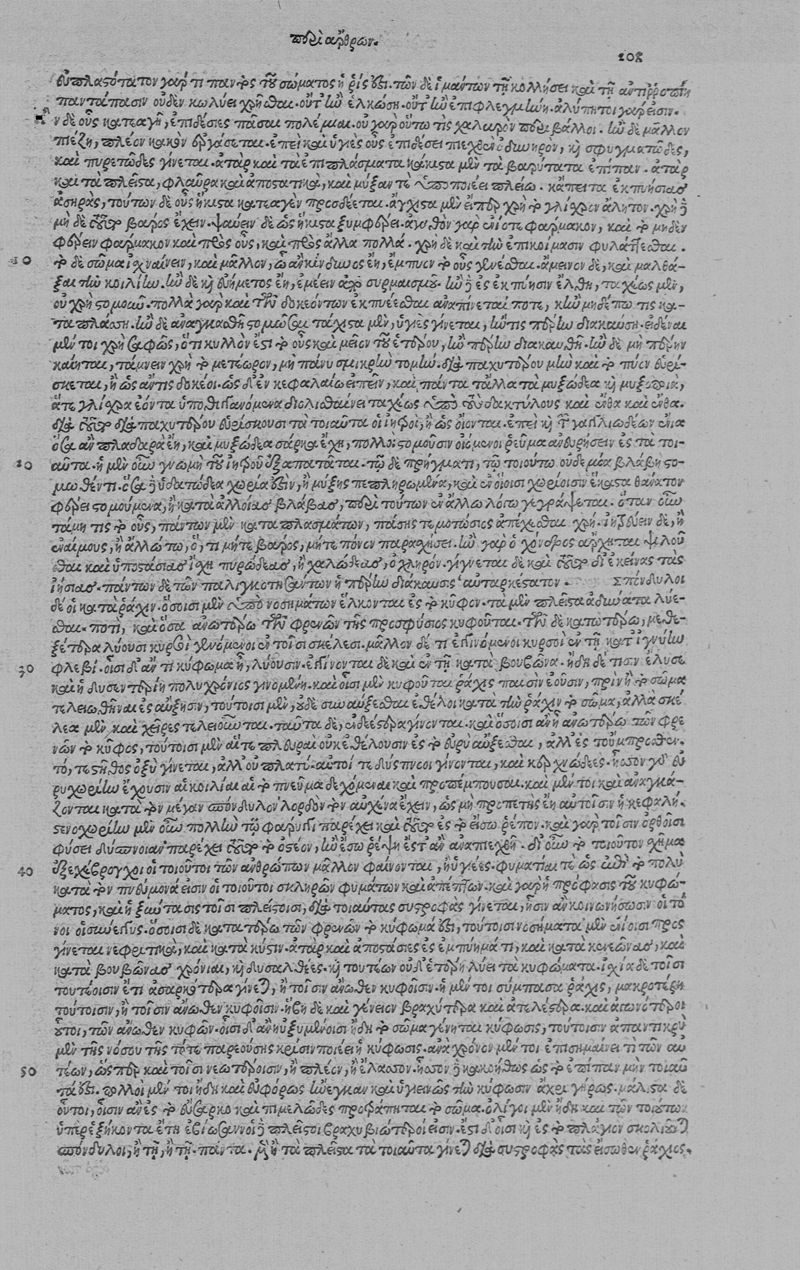 περὶ ἄρθρων.
108
εὐπλαστότατον γάρ τι παντὸς τοῦ σώματος ἡ ῥίς ἐστι. τῶν δὲ ἱμάντων τῇ κολλήσει καὶ τῇ ἀντιρροπίῃ
παντάπασιν οὐδὲν κωλύει χρῆσθαι. οὔτ' ἢν ἑλκώση. οὔτ' ἢν ἐπιφλεγμήνῃ. ἀλυπητοὶ γάρ εἰσιν.
ἢν δὲ οὖς καταγῇ, ἐπιδέσιες πᾶσαι πολέμιαι. οὐ γὰρ οὕτω τις χαλαρὸν περιβάλλοι. ἢν δὲ μᾶλλον
πιέζῃ, πλέον κακὸν ἐργάσεται. ἐπεὶ καὶ ὑγιὲς οὖς ἐπιδέσει πιεχθὲν ὀδυνηρὸν, καὶ σφυγματῶδες,
καὶ πυρετῶδες γίνεται. ἀτὰρ καὶ τὰ ἐπιπλάσματα κάκιστα μὲν τὰ βαρύτατα ἐπίπαν. ἀτὰρ
καὶ τὰ πλεῖστα, φλαῦρα καὶ ἀποστατικὰ, καὶ μύξαν τε ὑποποιέει πλείω. κἄπειτα ἐκπυήσιας
ἀσηρὰς, τούτων δὲ οὖς ἥκιστα καταγὲν προσδέεται. ἄγχιστα μὲν εἴπερ χρὴ τὸ γλίχρον ἄλητον. χρὴ δὲ
μὴ δὲ τοῦτο βάρος ἔχειν. ψαύειν δὲ ὡς ἥκιστα ξυμφέρει. ἀγαθὸν γὰρ ἐνίοτε φάρμακον, καὶ τὸ μηδὲν
φέρειν φάρμακον καὶ πρὸς οὖς, καὶ πρὸς ἄλλα πολλά. χρὴ δὲ καὶ τὴν ἐπικοίμασιν φυλάττεσθαι.
10 τὸ δὲ σῶμα ἰσχναίνειν, καὶ μᾶλλον, ᾧ ἂν κίνδυνος ἔῃ, ἔμπυον τὸ οὖς γενέσθαι. ἄμεινον δὲ, καὶ μαλθά-
ξαι τὴν κοιλίην. ἢν δὲ καὶ εὐήμετος ἔῃ, ἐμέειν ἀπὸ συρμαισμοῦ. ἢν δὲ ἐς ἐκπύησιν ἔλθῃ, ταχέως μὲν,
οὐ χρὴ στομοῦν. πολλὰ γὰρ καὶ τῶν δοκεόντων ἐκπυέεσθαι ἀναπίνεταί ποτε, κἢν μηδέπω τις κα-
ταπλάσῃ. ἢν δὲ ἀναγκασθῇ στομῶσαι τάχιστα μὲν, ὑγιὲς γίνεται, ἤν τις πέρην διακαύσῃ. εἰδέναι
μέντοι χρὴ σαφῶς, ὅτι κυλλὸν ἔσται τὸ οὖς καὶ μεῖον τοῦ ἑτέρου, ἢν πέρην διακαυθῇ. ἢν δὲ μὴ πέρην
καίηται, τάμνειν χρὴ τὸ μετέωρον, μὴ πάνυ σμικρὴν τομήν. διὰ παχυτέρου μὴν καὶ τὸ πῦον εὑρί-
σκεται, ἢ ὡς ἄν τις δοκέοι. ὡς δ' ἐν κεφαλαίῳ εἰπεῖν, καὶ πάντα τἄλλα τὰ μυξώδεα καὶ μυξοποιὰ,
ἅτε γλίχρα ἐόντα ὑποθιγγανόμενα διολισθαίνει ταχέως ὑπὸ τοὺς δακτύλους καὶ ἔνθα καὶ ἔνθα.
διὰ τοῦτο διὰ παχυτέρου εὑρίσκουσι τὰ τοιαῦτα οἱ ἰητροὶ, ἢ ὡς οἴονται. ἐπεὶ καὶ τῶν γαγγλιωδέων ἔνια
ὅσα ἂν πλαδαρὰ ἔῃ, καὶ μυξώδεα σάρκα ἔχῃ, πολλοὶ στομοῦσιν οἰόμενοι ῥεῦμα ἀνευρήσειν ἐς τὰ τοι-
20 αῦτα. ἡ μὲν οὖν γνώμη τοῦ ἰητροῦ ἐξαπατᾶται. τῷ δὲ πρήγματι, τῷ τοιούτῳ οὐδεμία βλάβη στο-
μωθέντι. ὅσα δὲ ὑδατώδεα χωρία ἐστὶν, ἢ μύξης πεπληρωμένα, καὶ ἐν οἵοισι χωρίοισιν ἕκαστα θάνατον
φέρει στομούμενα, ἢ καὶ ἀλλοίας βλάβας, περὶ τούτων ἐν ἄλλῳ λόγῳ γεγράψεται. ὅταν οὖν
τάμῃ τις τὸ οὖς, πάντων μὲν καταπλασμάτων, πάσης τε μοτώσιος ἀπέχεσθαι χρή. ἰητρεύειν δὲ, ἢ
ἐναίμοις, ἢ ἄλλῳ τῳ, ὅ, τι μήτε βάρος, μήτε πόνον παρασχήσει. ἢν γὰρ ὁ χόνδρος ἄρχηται ψιλοῦ
σθαι καὶ ὑποστασίας ἴσχῃ πυρώδεας, ἢ χαλώδεας, ὀχληρόν. γίγνεται δὲ καὶ τοῦτο δι' ἐκείνας τὰς
ἰήσιας. πάντων δὲ τῶν παλιγκοτησάντων ἡ πέρην διάκαυσις αὐταρκέστατον. Σπόνδυλοι
δὲ οἱ κατὰ ῥάχιν. ὅσοισι μὲν ὑπὸ νοσημάτων ἕλκονται ἐς τὸ κυφὸν. τὰ μὲν πλεῖστα ἀδύνατα λύε-
σθαι. ποτὶ, καὶ ὅσα ἀνωτέρω τῶν φρενῶν τῆς προσφύσιος κυφοῦται. τῶν δὲ κατωτέρω, μετε-
ξέτερα λύουσι κιρσοὶ γενόμενοι ἐν τοῖσι σκέλεσι. μᾶλλον δέ τι ἐγγινόμενοι κιρσοὶ ἐν τῇ κατ' ἰγνύην
30 φλεβί. οἷσι δ' ἄν τι κυφώμα ἢ, λύουσιν. ἐγγίνονται δὲ καὶ ἐν τῇ κατὰ βουβῶνα. ἤδη δέ τισιν ἔλυσε
καὶ ἡ δυσεντερίη πολυχρόνιος γινομένη. καὶ οἷσι μὲν κυφοῦται ῥάχις παισὶν ἐοῦσιν, πρὶν ἢ τὸ σῶμα
τελειωθῆναι ἐς αὔξησιν, τούτοισι μὲν, οὐδὲ συναύξεσθαι ἐθέλοι κατὰ τὴν ῥάχιν τὸ σῶμα, ἀλλὰ σκέ
λεα μὲν, καὶ χεῖρες τελειοῦνται. ταῦτα δὲ, ἐνδεέστερα γίνονται. καὶ ὅσοισι ἂν ᾖ ἀνωτέρω τῶν φρε
νῶν τὸ κῦφος, τούτοισι μὲν αἵ τε πλευραὶ οὐκ ἐθέλουσιν ἐς τὸ εὐρὺ αὔξεσθαι, ἀλλ' ἐς τοὔμπροσθεν.
τό, τε στῆθος ὀξὺ γίνεται, ἀλλ' οὐ πλατύ. αὐτοί τε δύσπνοοι γίνονται, καὶ κερχνώδεες. ἧσσον γὰρ εὐ
ρυχωρίην ἔχουσιν αἱ κοιλίαι αἱ τὸ πνεῦμα δεχόμεναι καὶ προπέμπουσαι. καὶ μέντοι καὶ ἀναγκά-
ζονται κατὰ τὸν μέγαν σπόνδυλον λορδὸν τὸν αὐχένα ἔχειν, ὡς μὴ προπετὴς ἔῃ αὐτοῖσιν ἡ κεφαλή.
στενοχωρίην μὲν οὖν πολλὴν τῇ φάρυγγι παρέχει καὶ τοῦτο ἐς τὸ εἴσω ῥέπον. καὶ γὰρ τοῖσιν ὀρθοῖσι
φύσει δύσπνοιαν παρέχει τοῦτο τὸ ὀστέον, ἢν ἔσω ῥέψῃ ἔστ' ἂν ἀναπιεχθῇ. δι' οὖν τὸ τοιοῦτον σχῆμα
40 ἐξεχέβρογχοι οἱ τοιοῦτοι τῶν ἀνθρώπων μᾶλλον φαίνονται, ἢ ὑγιέες. φυματίαι τε ὡς ἐπὶ τὸ πολὺ
κατὰ τὸν πνεύμονά εἰσιν οἱ τοιοῦτοι σκληρῶν φυμάτων καὶ ἀπέπτων. καὶ γὰρ ἡ πρόφασις τοῦ κυφώ-
ματος, καὶ ἡ ξύντασις τοῖσι πλείστοισι, διὰ τοιαύτας συστροφὰς γίνεται, ἧσιν ἂν κοινωνήσωσιν οἱ τό
νοι οἱ σύνεγγυς. ὅσοισι δὲ κατωτέρω τῶν φρενῶν τὸ κύφωμά ἐστι, τούτοισι νοσήματα μὲν ἐνίοισι προς
γίνεται νεφριτικὰ, καὶ κατὰ κύστιν. ἀτὰρ καὶ ἀποστάσιες ἐς ἐμπυήματι, καὶ κατὰ κενεῶνας, καὶ
κατὰ βουβῶνας χρόνιαι, καὶ δυσαλθέες. καὶ τουτέων οὐδ' ἑτέρη λύει τὰ κυφώματα. ἰσχία δὲ τοῖσι
τουτέοισιν ἔτι ἀσαρκότερα γίνεται, ἢ τοῖσιν ἄνωθεν κυφοῖσιν. ἡ μέντοι σύμπασα ῥάχις, μακροτέρη
τούτοισιν, ἢ τοῖσιν ἄνωθεν κυφοῖσιν. ἥβη δὲ καὶ γένειον βραχύτερα καὶ ἀτελέστερα. καὶ ἀγονώτεροι
οὗτοι, τῶν ἄνωθεν κυφῶν. οἷσι δ' ἂν ηὐξημένοισι ἤδη τὸ σῶμα γένηται κύφωσις, τούτοισιν ἀπαντικρὺ
μὲν τῆς νόσου τῆς τότε παρεούσης κρίσιν ποιέει ἡ κύφωσις. ἀνὰ χρόνον μέντοι ἐπισημαίνει τι τῶν αὐ
50 τέων, ὥσπερ καὶ τοῖσι νεωτέροισιν, ἢ πλέον, ἢ ἔλασσον. ἧσσον δὲ κακοήθως ὡς τὸ ἐπίπαν μὴν τοιαῦ
τά ἐστι. πολλοὶ μέντοι ἤδη καὶ εὐφόρως ἤνεγκαν καὶ ὑγιεινῶς τὴν κύφωσιν ἄχρι γήρως. μάλιστα δὲ
οὗτοι, οἷσιν ἂν ἐς τὸ εὔσαρκον καὶ πιμελῶδες προτράπηται τὸ σῶμα. ὀλίγοι μὴν ἤδη καὶ τῶν τοιούτων
ὑπὲρ ἑξήκοντα ἔτη ἐβίωσαν. οἱ δὲ πλεῖστοι βραχυβιώτεροί εἰσιν. ἔστι δ' οἷσι καὶ ἐς τὸ πλάγιον σκολιοῦνται
σπόνδυλοι, ἢ τῇ, ἢ τῇ. πάντα. μὴν ἢ τὰ πλεῖστα τὰ τοιαῦτα γίνεται διὰ συστροφὰς τὰς ἔισωθεν ῥάχιος.